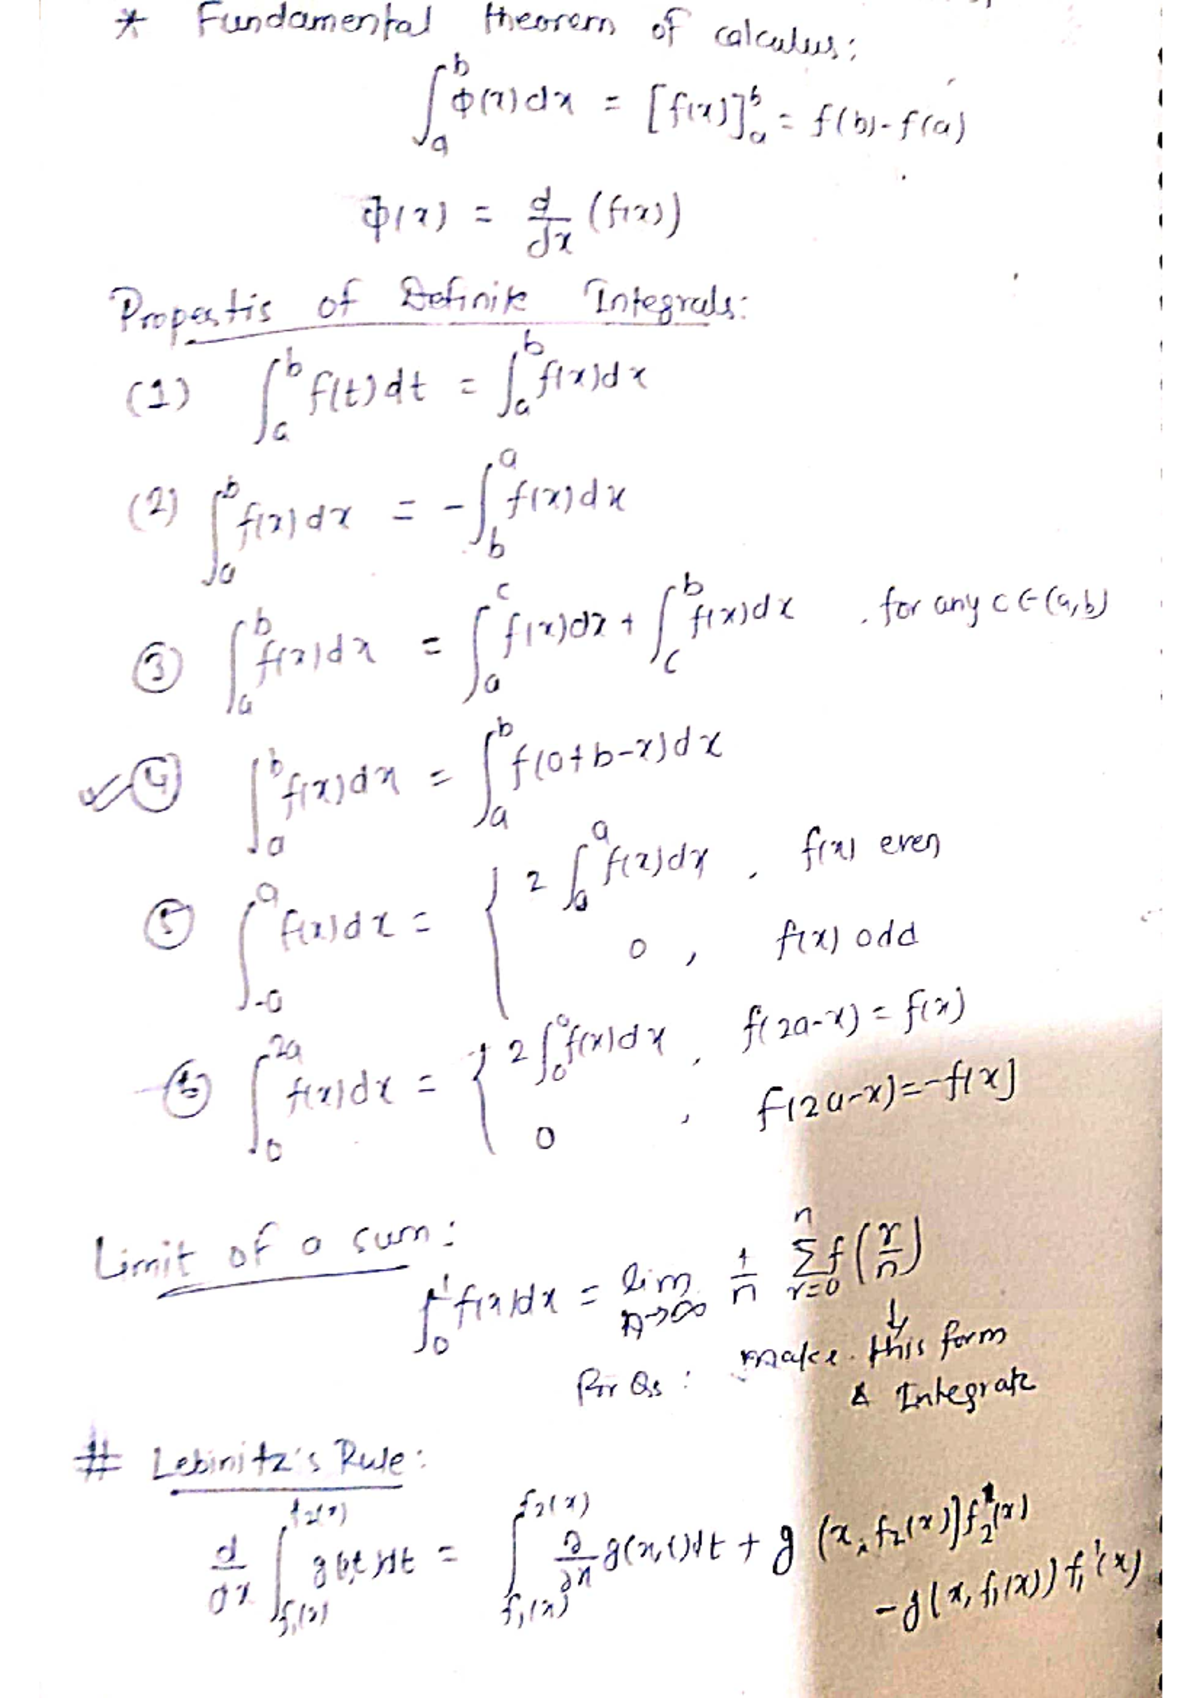 * Fundamental theorem of calculus:
∫_a^b ϕ(x)dx = [f(x)]_a^b = f(b)-f(a)
ϕ(x) = d/dx (f(x))
Propertis of Definite Integrals:
(1) ∫_a^b f(t)dt = ∫_a^b f(x)dx
(2) ∫_a^b f(x)dx = -∫_b^a f(x)dx
③ ∫_a^b f(x)dx = ∫_a^c f(x)dx + ∫_c^b f(x)dx , for any c ∈ (a,b)
✓④ ∫_a^b f(x)dx = ∫_a^b f(a+b-x)dx
⑤ ∫_-a^a f(x)dx = { 2∫_0^a f(x)dx , f(x) even
0 , f(x) odd
⑥ ∫_0^2a f(x)dx = { 2∫_0^a f(x)dx , f(2a-x) = f(x)
0 , f(2a-x)=-f(x)
Limit of a sum:
∫_0^1 f(x)dx = lim_n→∞ 1/n Σ_r=0^n f(r/n)
↓
For Qs : make this form
& Integrate
# Lebinitz's Rule:
d/dx ∫_f₁(x)^f₂(x) g(x,t)dt = ∫_f₁(x)^f₂(x) ∂/∂x g(x,t)dt + g(x, f₂(x)) f₂'(x)
-g(x, f₁(x)) f₁'(x)